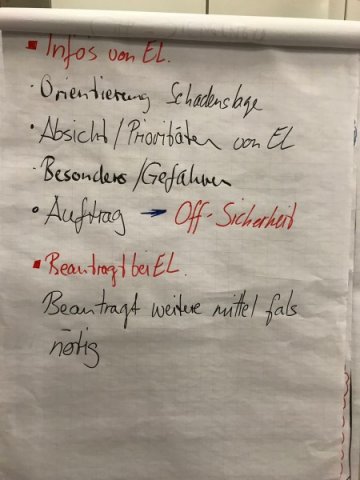 ▪ Infos von EL.
· Orientierung Schadenslage
· Absicht/Prioritäten von EL
· Besonders/Gefahren
· Auftrag → Off-Sicherheit
▪ Beantragt bei EL.
Beantragt weitere mittel fals
nötig